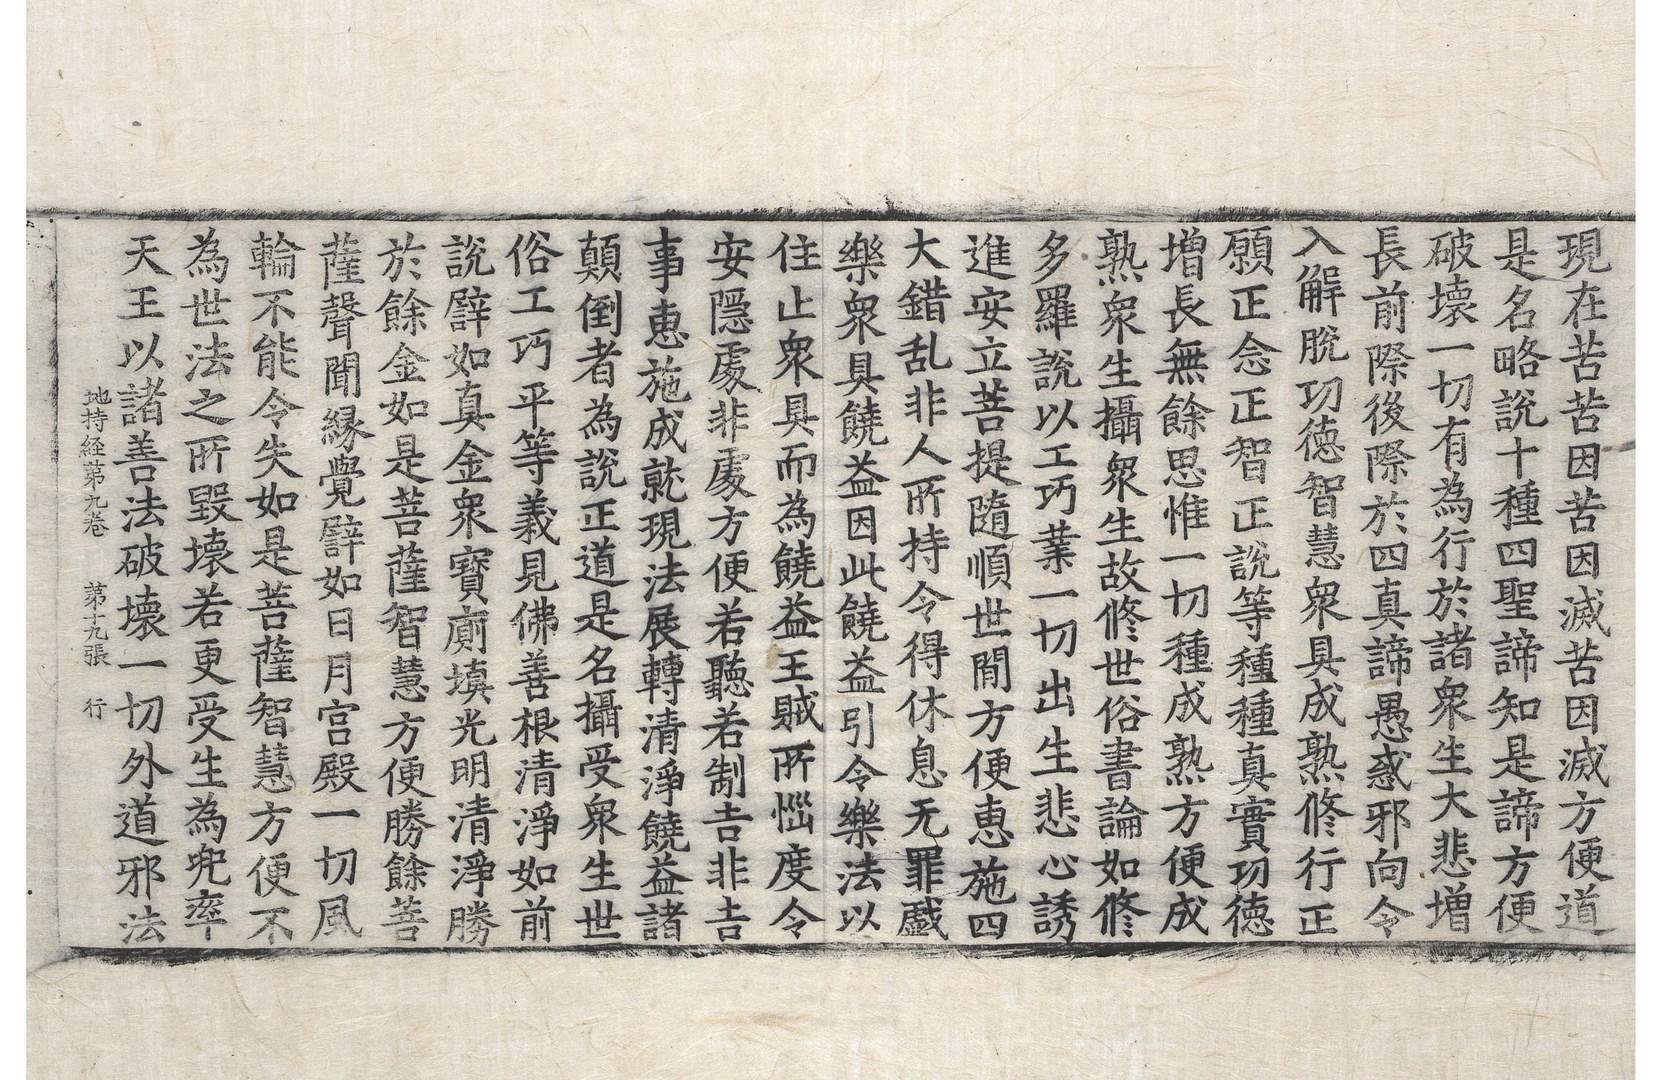 現在苦苦因苦因滅苦因滅方便道
是名略說十種四聖諦知是諦方便
破壞一切有為行於諸衆生大悲增
長前際後際於四真諦愚惑邪向令
入解脫功德智慧衆具成熟修行正
願正念正智正說等種種真實功德
增長無餘思惟一切種成熟方便成
熟衆生攝衆生故修世俗書論如修
多羅說以工巧業一切出生悲心誘
進安立菩提隨順世間方便惠施四
大錯乱非人所持令得休息无罪戲
樂衆具饒益因此饒益引令樂法以
住止衆具而為饒益王賊所惱度令
安隱處非處方便若聽若制吉非吉
事惠施成就現法展轉清淨饒益諸
顛倒者為說正道是名攝受衆生世
俗工巧平等義見佛善根清淨如前
說譬如真金衆寶廁填光明清淨勝
於餘金如是菩薩智慧方便勝餘菩
薩聲聞緣覺譬如日月宮殿一切風
輪不能令失如是菩薩智慧方便不
為世法之所毀壞若更受生為兜率
天王以諸善法破壞一切外道邪法
地持経第九卷 第十九張 行